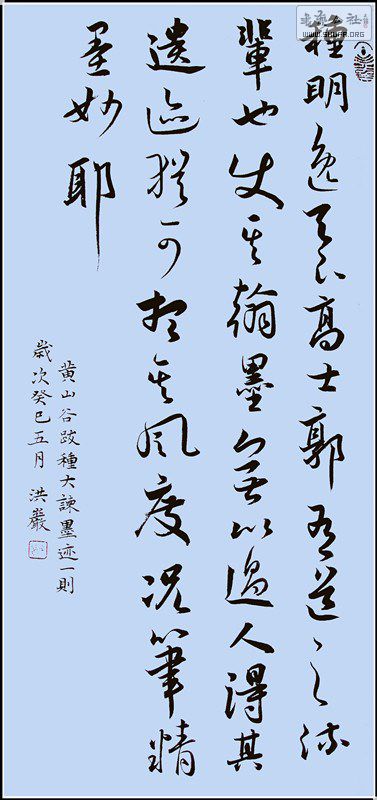 種明逸天下高士郭有道之流
輩也使其翰墨無以過人得其
遺迹猶可想其風度況筆精
墨妙耶
黄山谷跋種大諫墨迹一則
歲次癸巳五月 洪巖
WWW.SHUFA.ORG